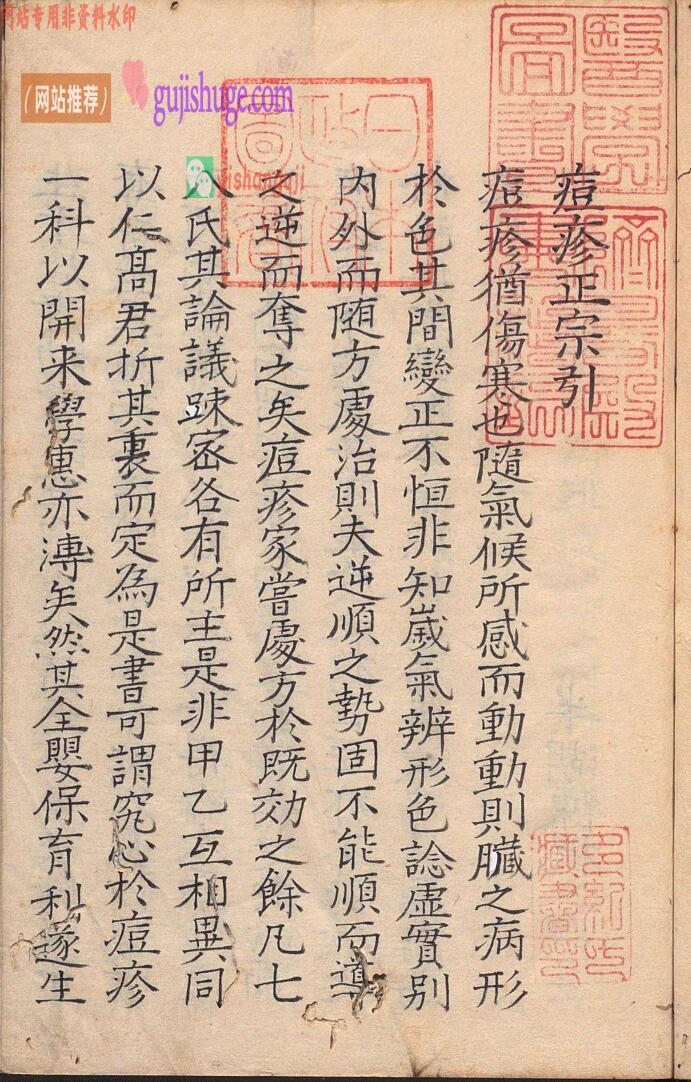 痘疹正宗引
痘疹猶傷寒也隨氣候所感而動動則臟之病形
於色其間變正不恒非知歲氣辨形色諗虛實別
内外而随方處治則夫逆順之勢固不能順而導
之逆而奪之矣痘疹家嘗處方於既効之餘凡七
八氏其論議踈宻各有所主是非甲乙互相異同
以仁髙君折其裏而定為是書可謂究心於痘疹
一科以開来學惠亦溥矣然其全嬰保育利遂生
网站专用非资料水印
（网站推荐）
gujishuge.com